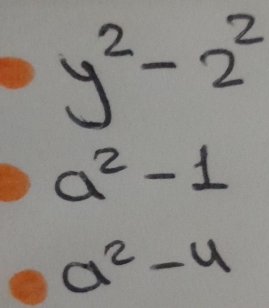 y² - 2²
a² - 1
a² - 4